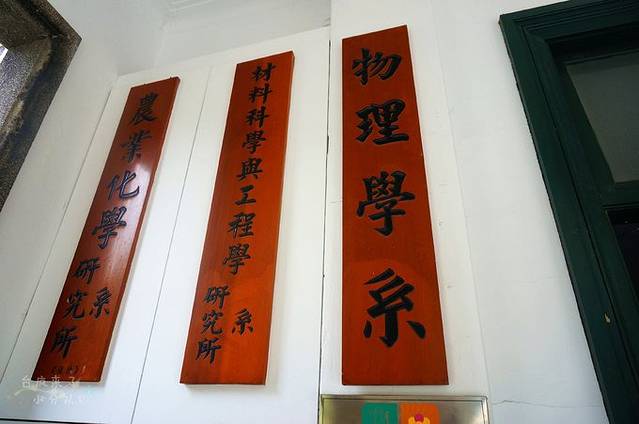 物理學系
材料科學與工程學系
研究所
農業化學系
研究所